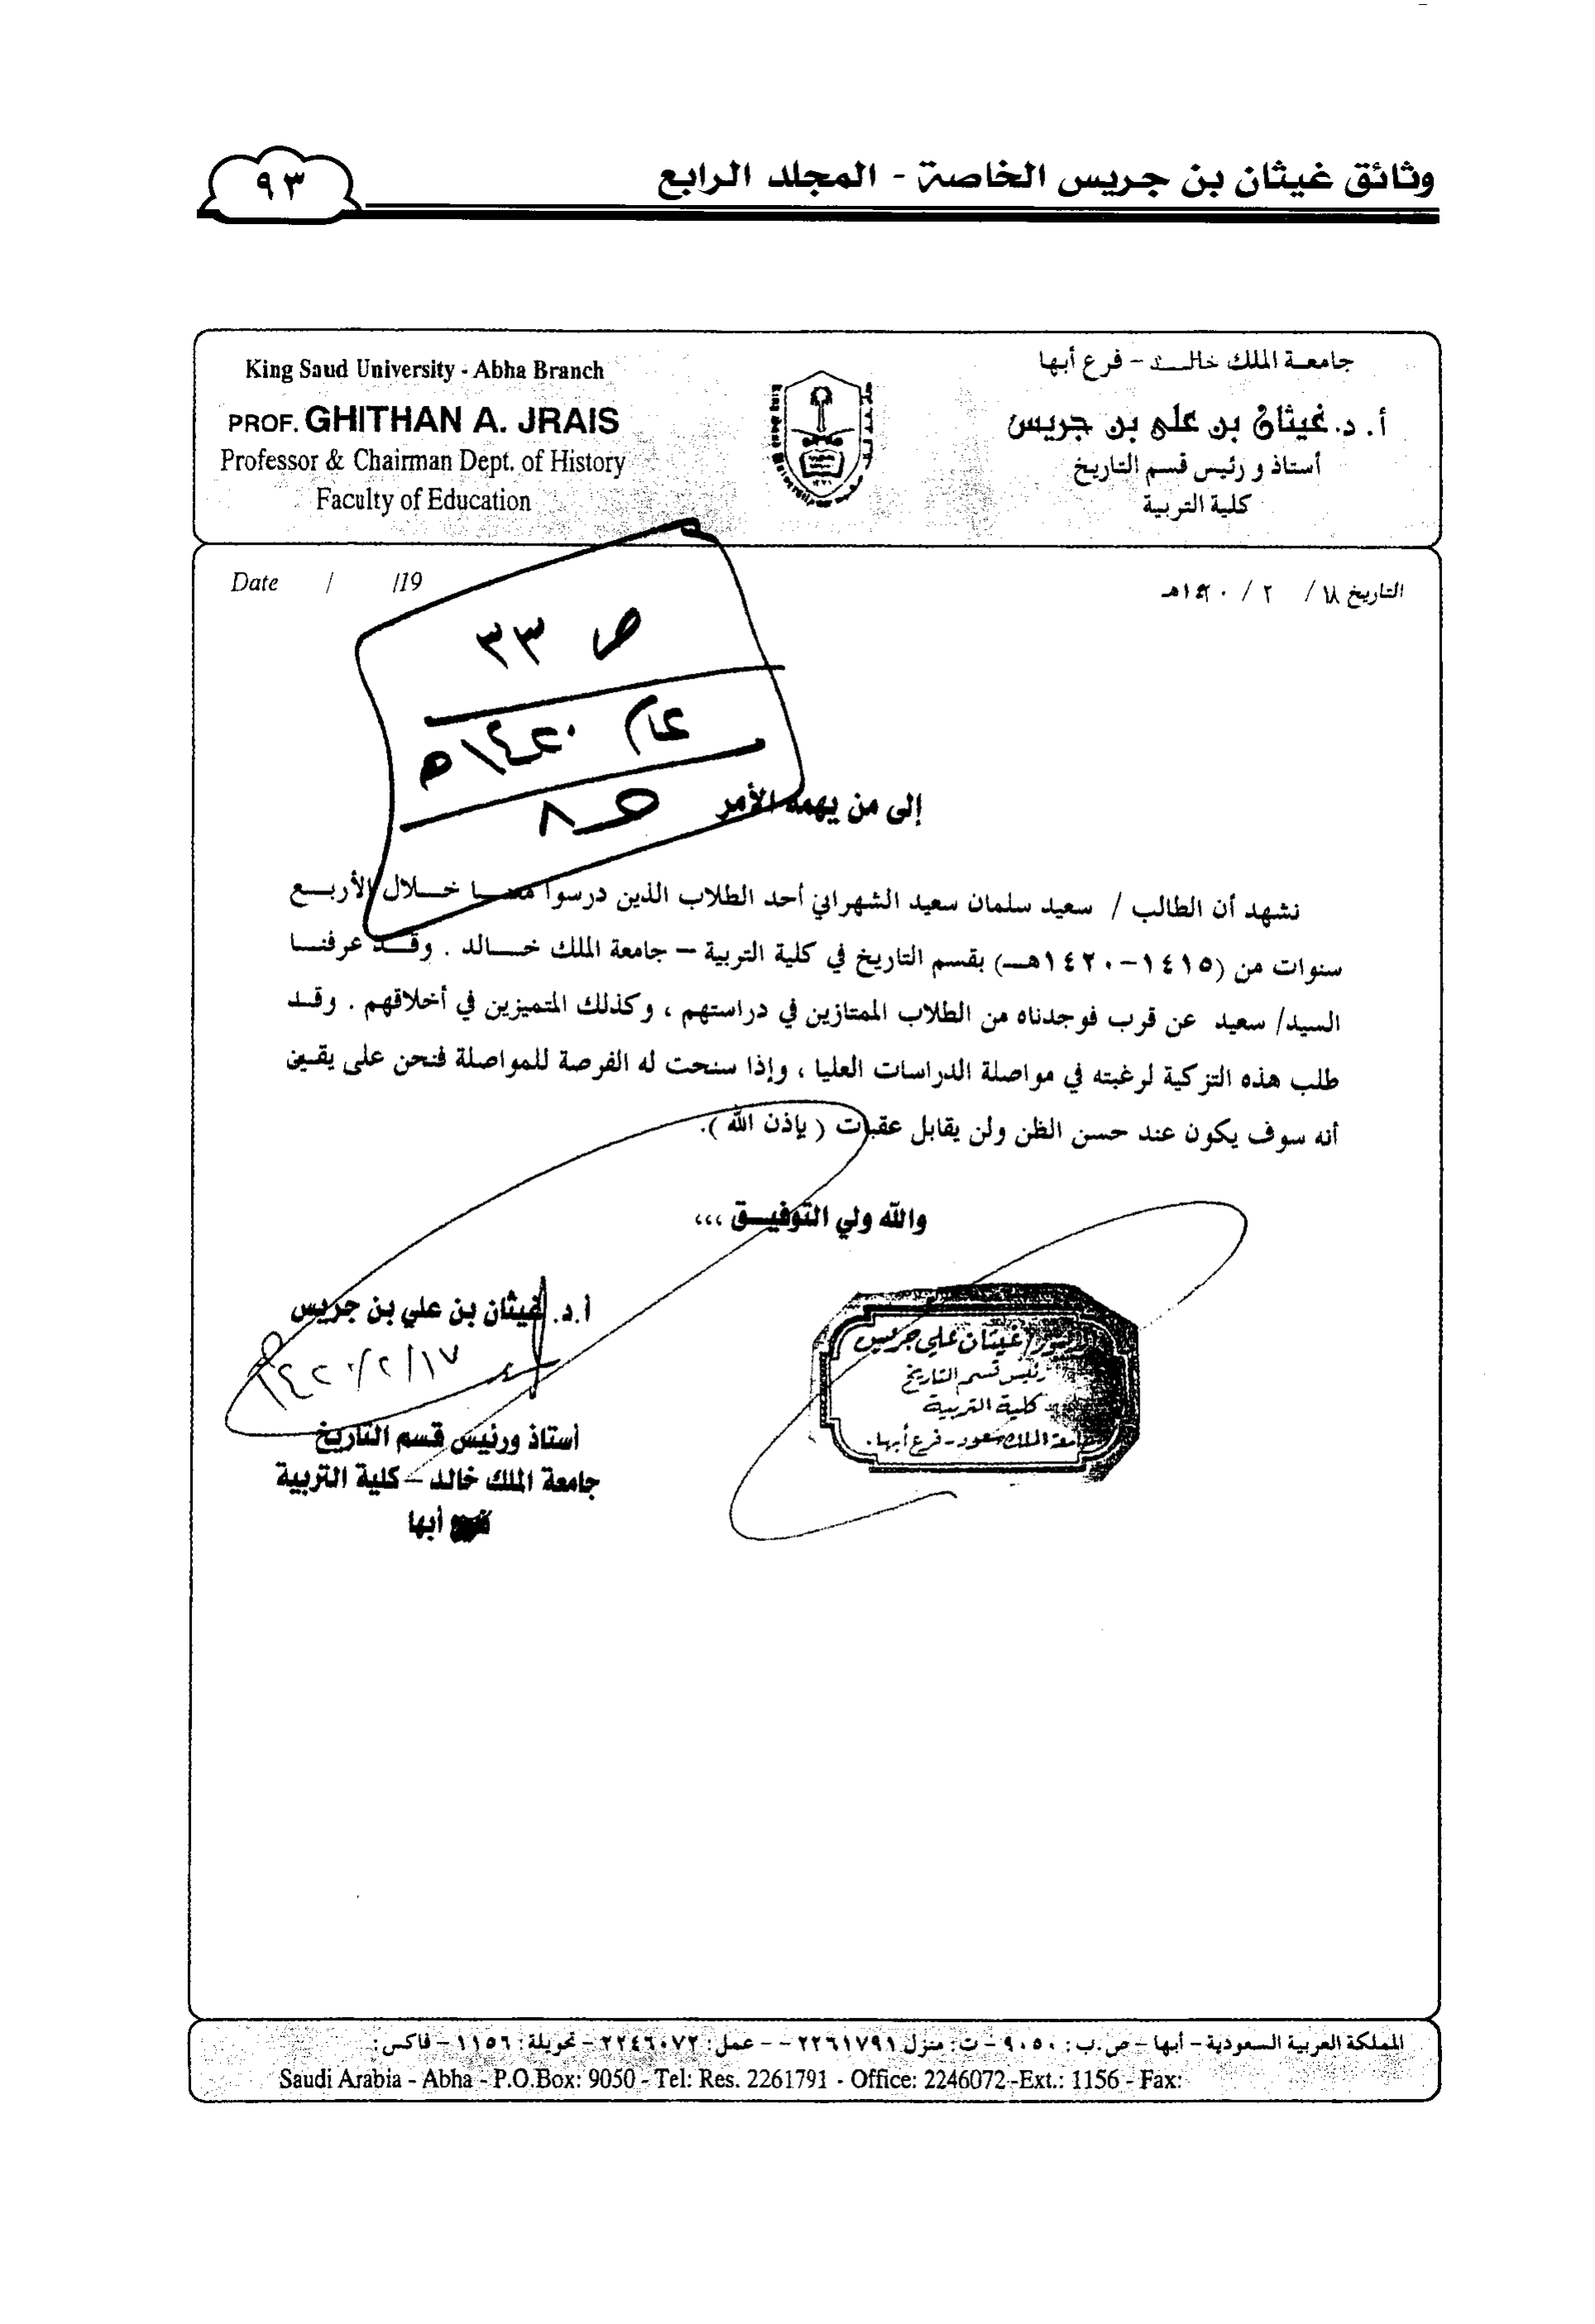 وثائق غيثان بن جريس الخاصة - المجلد الرابع
٩٣
جامعة الملك خالد - فرع أبها
أ. د. غيثان بن علي بن جريس
أستاذ و رئيس قسم التاريخ
كلية التربية
King Saud University - Abha Branch
PROF. GHITHAN A. JRAIS
Professor & Chairman Dept. of History
Faculty of Education
التاريخ ١٨ / ٢ / ١٤٢٠هـ
Date / /19
ص ٣٣
عام ١٤٢٠هـ
إلى من يهمه الأمر
نشهد أن الطالب / سعيد سلمان سعيد الشهراني أحد الطلاب الذين درسوا معنا خلال الأربع
سنوات من (١٤١٥-١٤٢٠هـ) بقسم التاريخ في كلية التربية – جامعة الملك خالد . وقد عرفنا
السيد/ سعيد عن قرب فوجدناه من الطلاب الممتازين في دراستهم ، وكذلك المتميزين في أخلاقهم . وقد
طلب هذه التزكية لرغبته في مواصلة الدراسات العليا ، وإذا سنحت له الفرصة للمواصلة فنحن على يقين
أنه سوف يكون عند حسن الظن ولن يقابل عقبات ( بإذن الله ).
والله ولي التوفيق ،،،
أ.د. غيثان بن علي بن جريس
١٤٢٠/٢/١٧هـ
أستاذ ورئيس قسم التاريخ
جامعة الملك خالد – كلية التربية
أبها
غيثان علي جريس
رئيس قسم التاريخ
كلية التربية
جامعة الملك سعود - فرع أبها.
المملكة العربية السعودية - أبها - ص.ب: ٩٠٥٠ - ت: منزل ٢٢٦١٧٩١ - - عمل: ٢٢٤٦٠٧٢ - تحويلة: ١١٥٦ - فاكس:
Saudi Arabia - Abha - P.O.Box: 9050 - Tel: Res. 2261791 - Office: 2246072 -Ext.: 1156 - Fax: